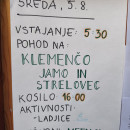 SREDA, 5.8.
VSTAJANJE: 5:30
POHOD NA:
KLEMENČO
JAMO IN
STRELOVEC
KOSILO 16:00
AKTIVNOSTI:
-LADJICE